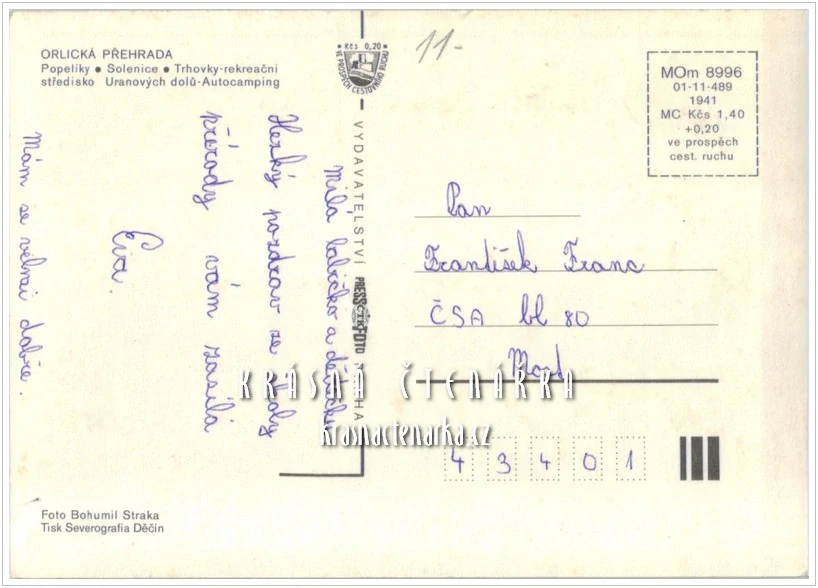 ORLICKÁ PŘEHRADA
Popelíky • Solenice • Trhovky-rekreační
středisko Uranových dolů-Autocamping
Kčs 0,20
VE PROSPĚCH CESTOVNÍHO RUCHU
11-
MOm 8996
01-11-489
1941
MC Kčs 1,40
+0,20
ve prospěch
cest. ruchu
VYDAVATELSTVÍ PRESSFOTO PRAHA
ČTK
Milá babičko a dědečku
Hezký pozdrav ze školy
přírody vám zasílá
Eva.
Mám se velmi dobře.
Pan
František Franc
ČSA bl 80
Most
43401
KRÁSNÁ ČTENÁŘKA
krasnactenarka.cz
Foto Bohumil Straka
Tisk Severografia Děčín